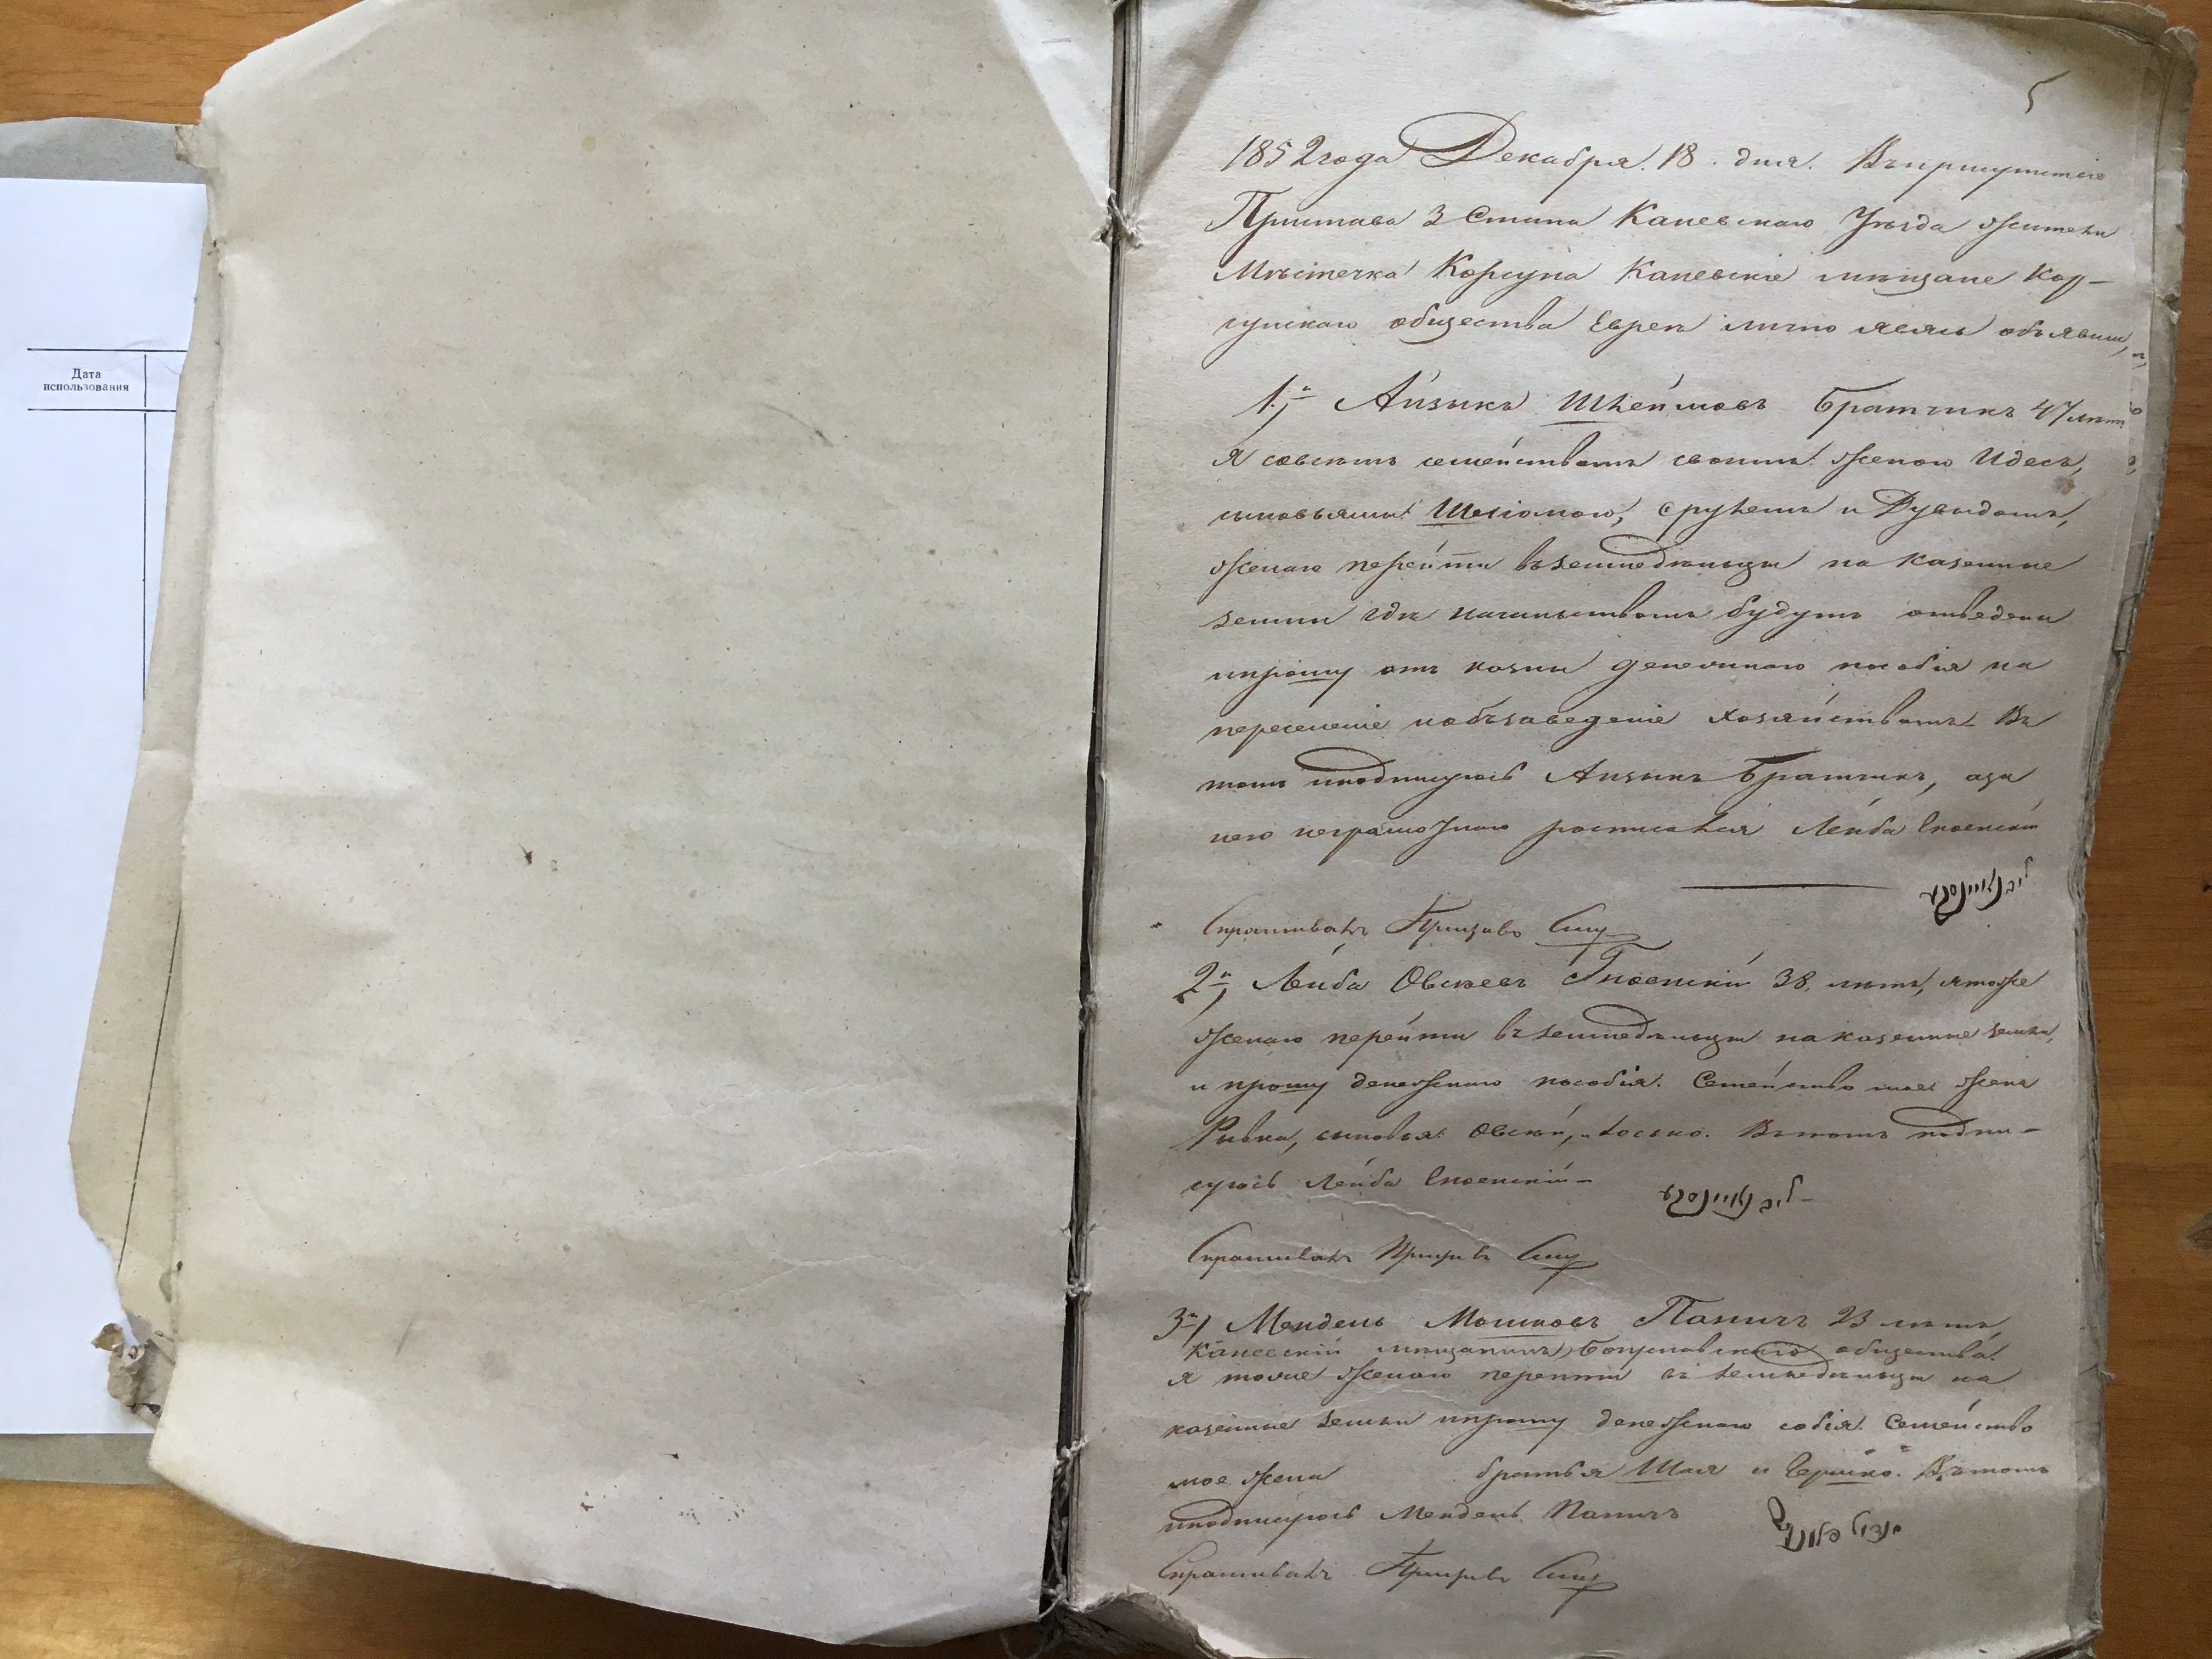 Дата
использования
5
1852 года Декабря 18. дня. Въ присутствіе
Пристава 3 Стана Каневскаго Уѣзда жители
Мѣстечка Корсуна Каневскіе мѣщане Кор-
сунскаго общества Евреи лично явясь объявили,
1й, Айзыкъ Шлеймовъ Братчикъ 47 лѣтъ
я совсемъ семействомъ своимъ женою Идесъ,
сыновьями Шліомою, Срулемъ и Дувыдомъ,
желаю перейти въ земледѣльцы на казенные
земли где начальствомъ будутъ отведены
и прошу отъ казны денежнаго пособія на
переселеніе и обзаведеніе хозяйствомъ. Въ
томъ и подписуюсь Айзыкъ Братчикъ, а за
него неграмотнаго росписался Лейба Гноенскій
Спрашивалъ Приставъ
2й, Лейба Овсеевъ Гноенскій 38. лѣтъ, я тоже
желаю перейти въ земледѣльцы на казенные земли,
и прошу денежнаго пособія. Семейство мое жена
Ривка, сыновья Овсѣй, и Іосько. Въ томъ подпи-
суюсь Лейба Гноенскій
Спрашивалъ Приставъ
3й, Мендель Мошковъ Паничъ 23 лѣтъ,
Каневскій мѣщанинъ, Богуславскаго общества.
я тоже желаю перейти въ земледѣльцы на
казенные земли и прошу денежнаго собія. Семейство
мое жена братья Шая и Гершко. Въ томъ
и подписуюсь Мендель Паничъ
Спрашивалъ Приставъ